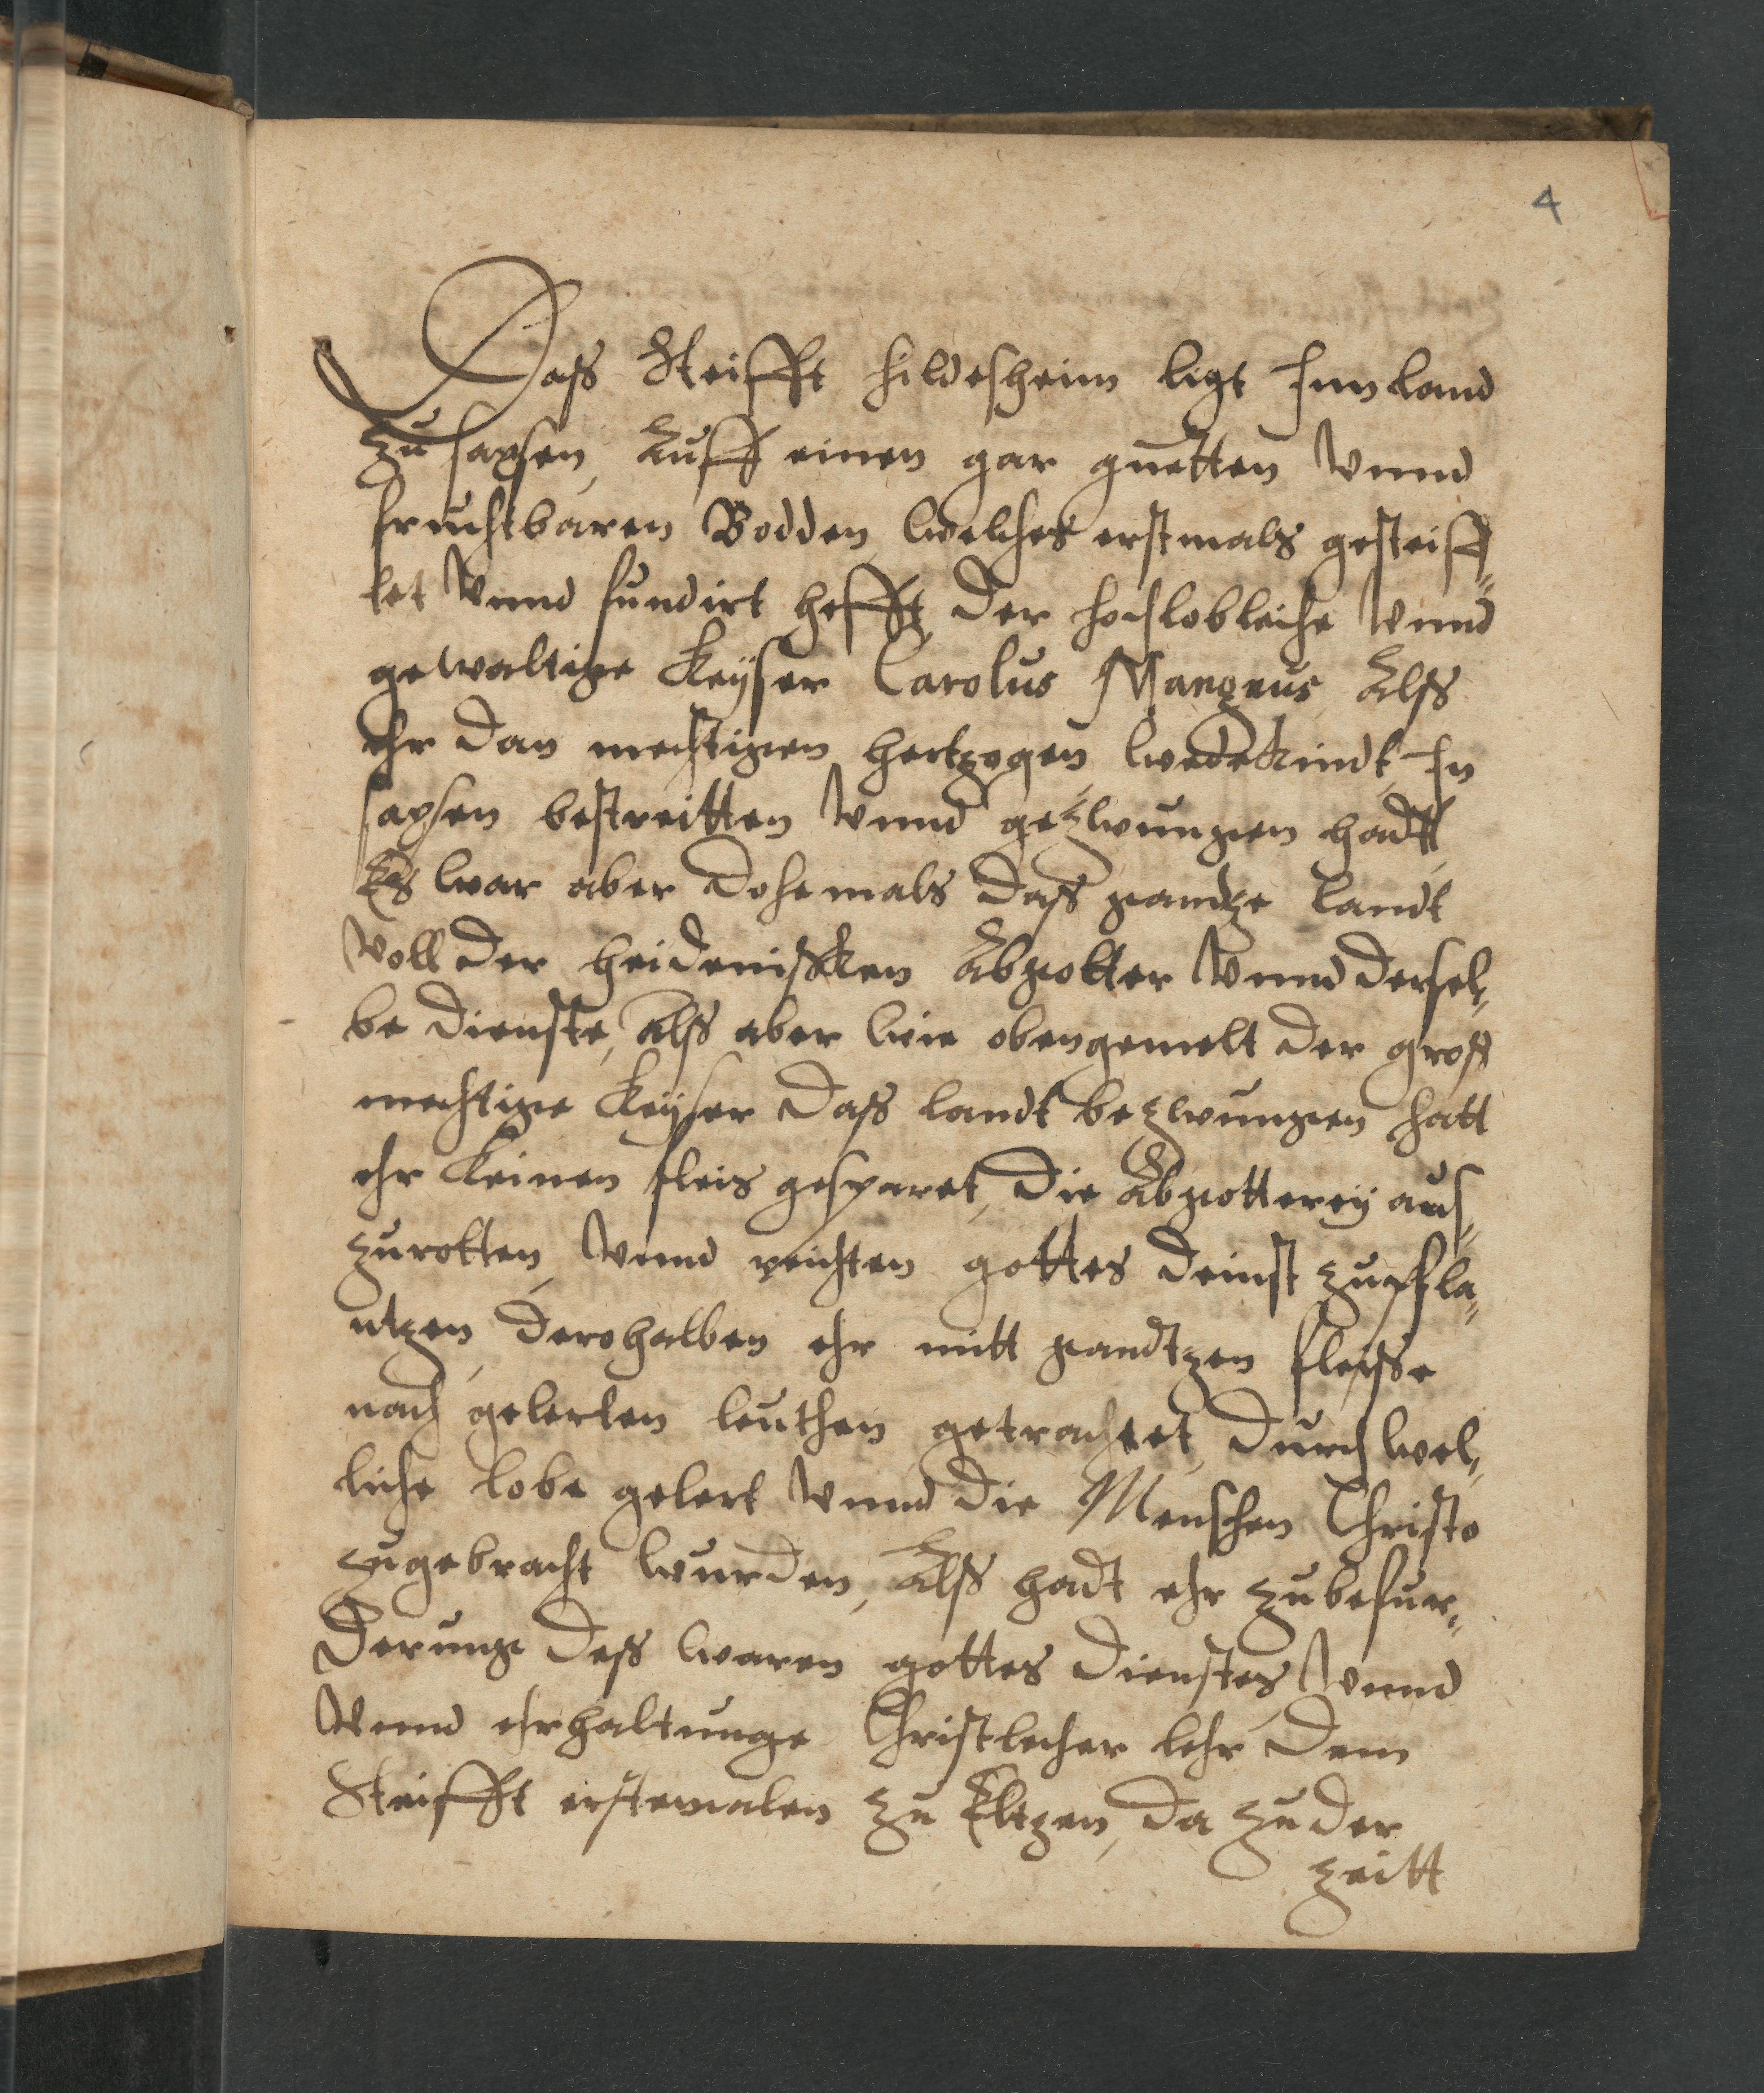 4
Dass Steifft hildesheim ligt Inn land
zu sachsen, Auff einen gar guetten Vnnd
fruchtbaren Bodden, welches erstmals gesteiff„
tet Vnnd fundirt hefft, der hochlobleiche Vnnd
gewaltige Keyser Carolus Mangnus Alss
ehr den mechtigen hertzogen wedekindt, In
sachsen bestreitten Vnnd gezwungen hadtt,
Es war aber dohemals dass gandtze landt
Voll der heidenischken Abgotter Vnnd dersel„
be dienste, Alss aber wie obengemelt der gross
mechtige Keyser dass landt bezwungen hatt
ehr keinen fleis gesparet, die Abgotterey aus„
zurotten, Vnnd reichten gottes deinst zupfla„
ntzen, derohalben ehr mitt gandtzen fleisse
nach gelerten leuthen getrachtet, durch wel„
liche lobe gelert Vnnd die Menschen Christo
zugebracht wurden, Alss hadt ehr zubefur„
derunge dess waren gottes dienstes, Vnnd
Vnnd ehrhaltunge Christlecher lehr dem
Steifft erstemalen zu Eltzen, da zu der
zeitt